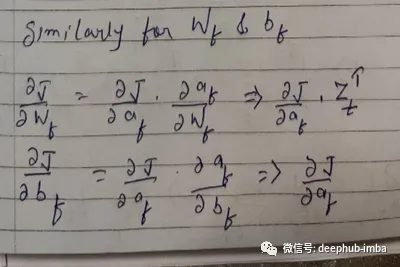 Similarly for W_f & b_f
∂J/∂W_f = ∂J/∂a_f · ∂a_f/∂W_f => ∂J/∂a_f · Z_t^T
∂J/∂b_f = ∂J/∂a_f · ∂a_f/∂b_f => ∂J/∂a_f
微信号: deephub-imba